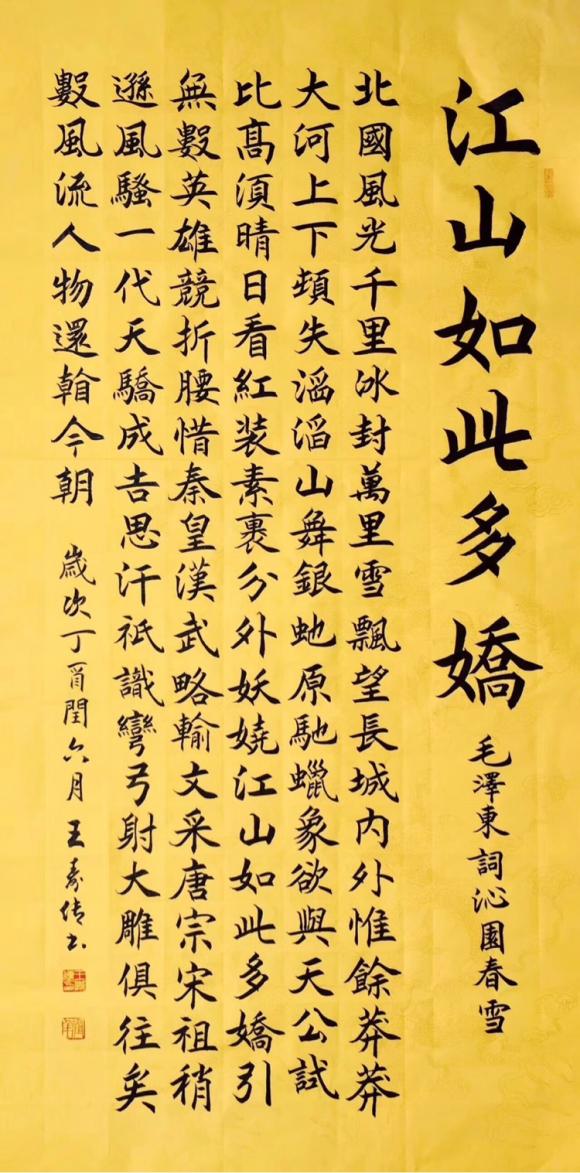 江山如此多嬌
毛澤東詞沁園春雪
北國風光千里冰封萬里雪飄望長城内外惟餘莽莽
大河上下頓失滔滔山舞銀虵原馳蠟象欲與天公試
比髙須晴日看紅装素裹分外妖嬈江山如此多嬌引
無數英雄競折腰惜秦皇漢武略輸文采唐宗宋祖稍
遜風騷一代天驕成吉思汗祇識彎弓射大雕俱往矣
數風流人物還看今朝
歲次丁酉閏六月王壽倩书